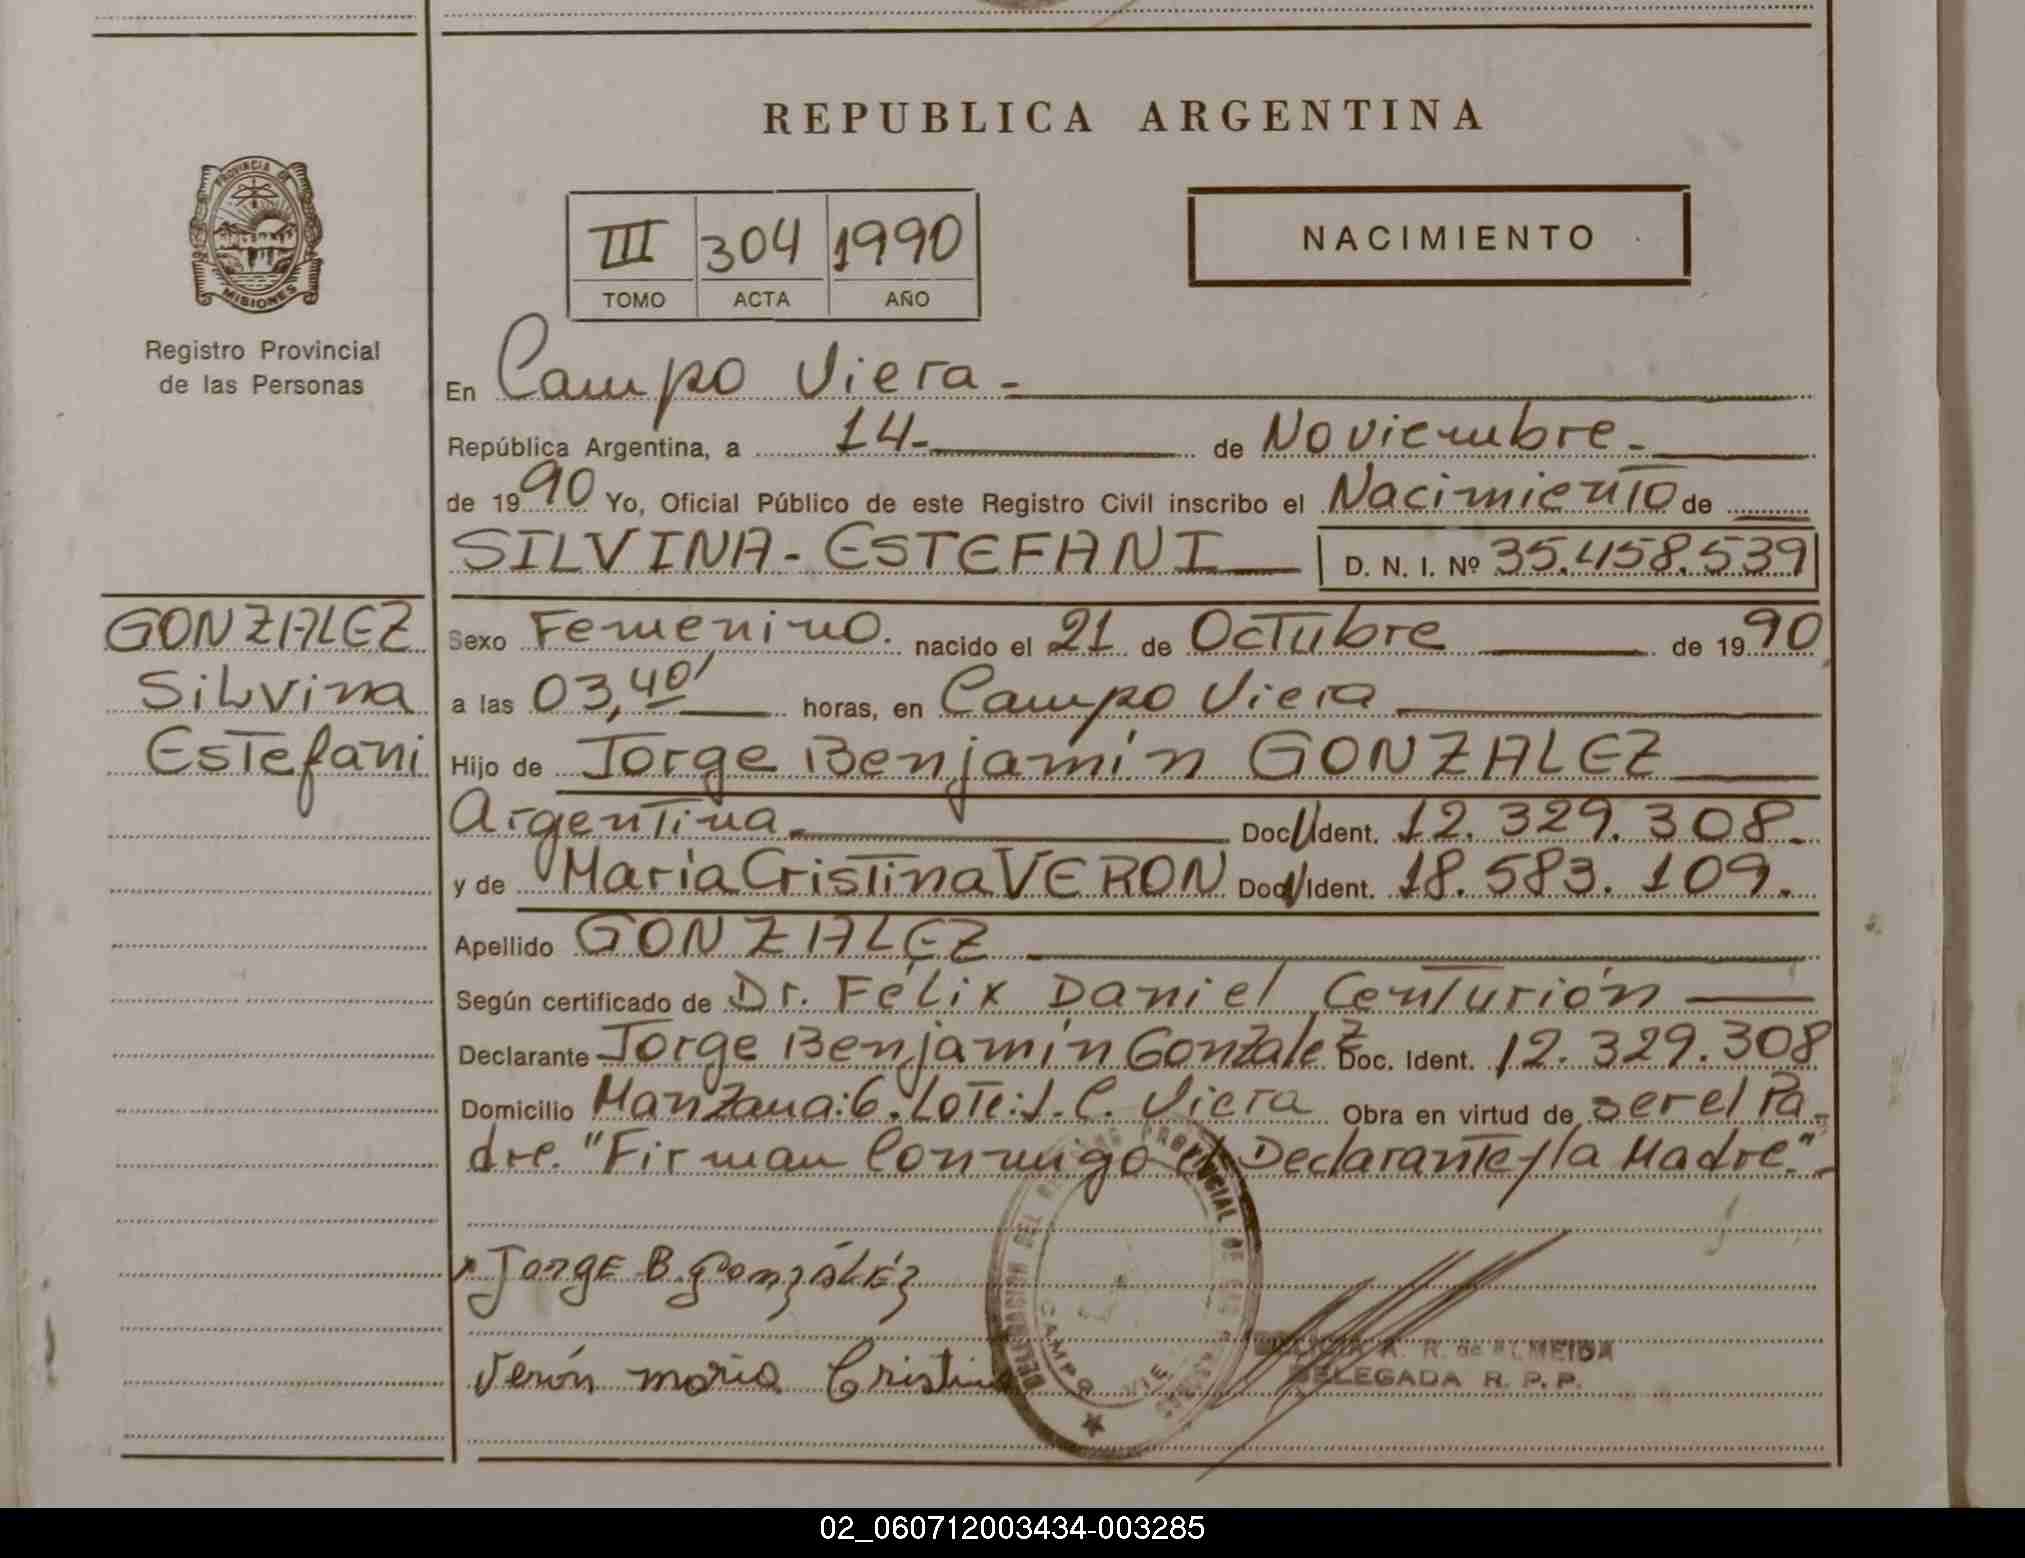 REPUBLICA ARGENTINA
PROVINCIA DE
MISIONES
Registro Provincial
de las Personas
III 304 1990
TOMO ACTA AÑO
NACIMIENTO
En Campo Viera -
República Argentina, a 14- de Noviembre -
de 1990 Yo, Oficial Público de este Registro Civil inscribo el Nacimiento de
SILVINA - ESTEFANI D. N. I. Nº 35.458.539
GONZALEZ
Silvina
Estefani
Sexo Femenino. nacido el 21 de Octubre de 1990
a las 03,40' horas, en Campo Viera
Hijo de Jorge Benjamín GONZALEZ
Argentina - Doc. Ident. 12.329.308.-
y de María Cristina VERON Doc. Ident. 18.583.109.
Apellido GONZALEZ
Según certificado de Dr. Félix Daniel Centurión
Declarante Jorge Benjamín Gonzalez Doc. Ident. 12.329.308
Domicilio Manzana:6. Lote:1. C. Viera Obra en virtud de ser el Pa-
dre. "Firman Conmigo el Declarante y la Madre."-
Jorge B. González
Verón maria Cristina
DELEGACION DEL REGISTRO PROVINCIAL DE LAS PERSONAS
CAMPO VIERA
A. R. de ALMEIDA
DELEGADA R. P. P.
02_060712003434-003285